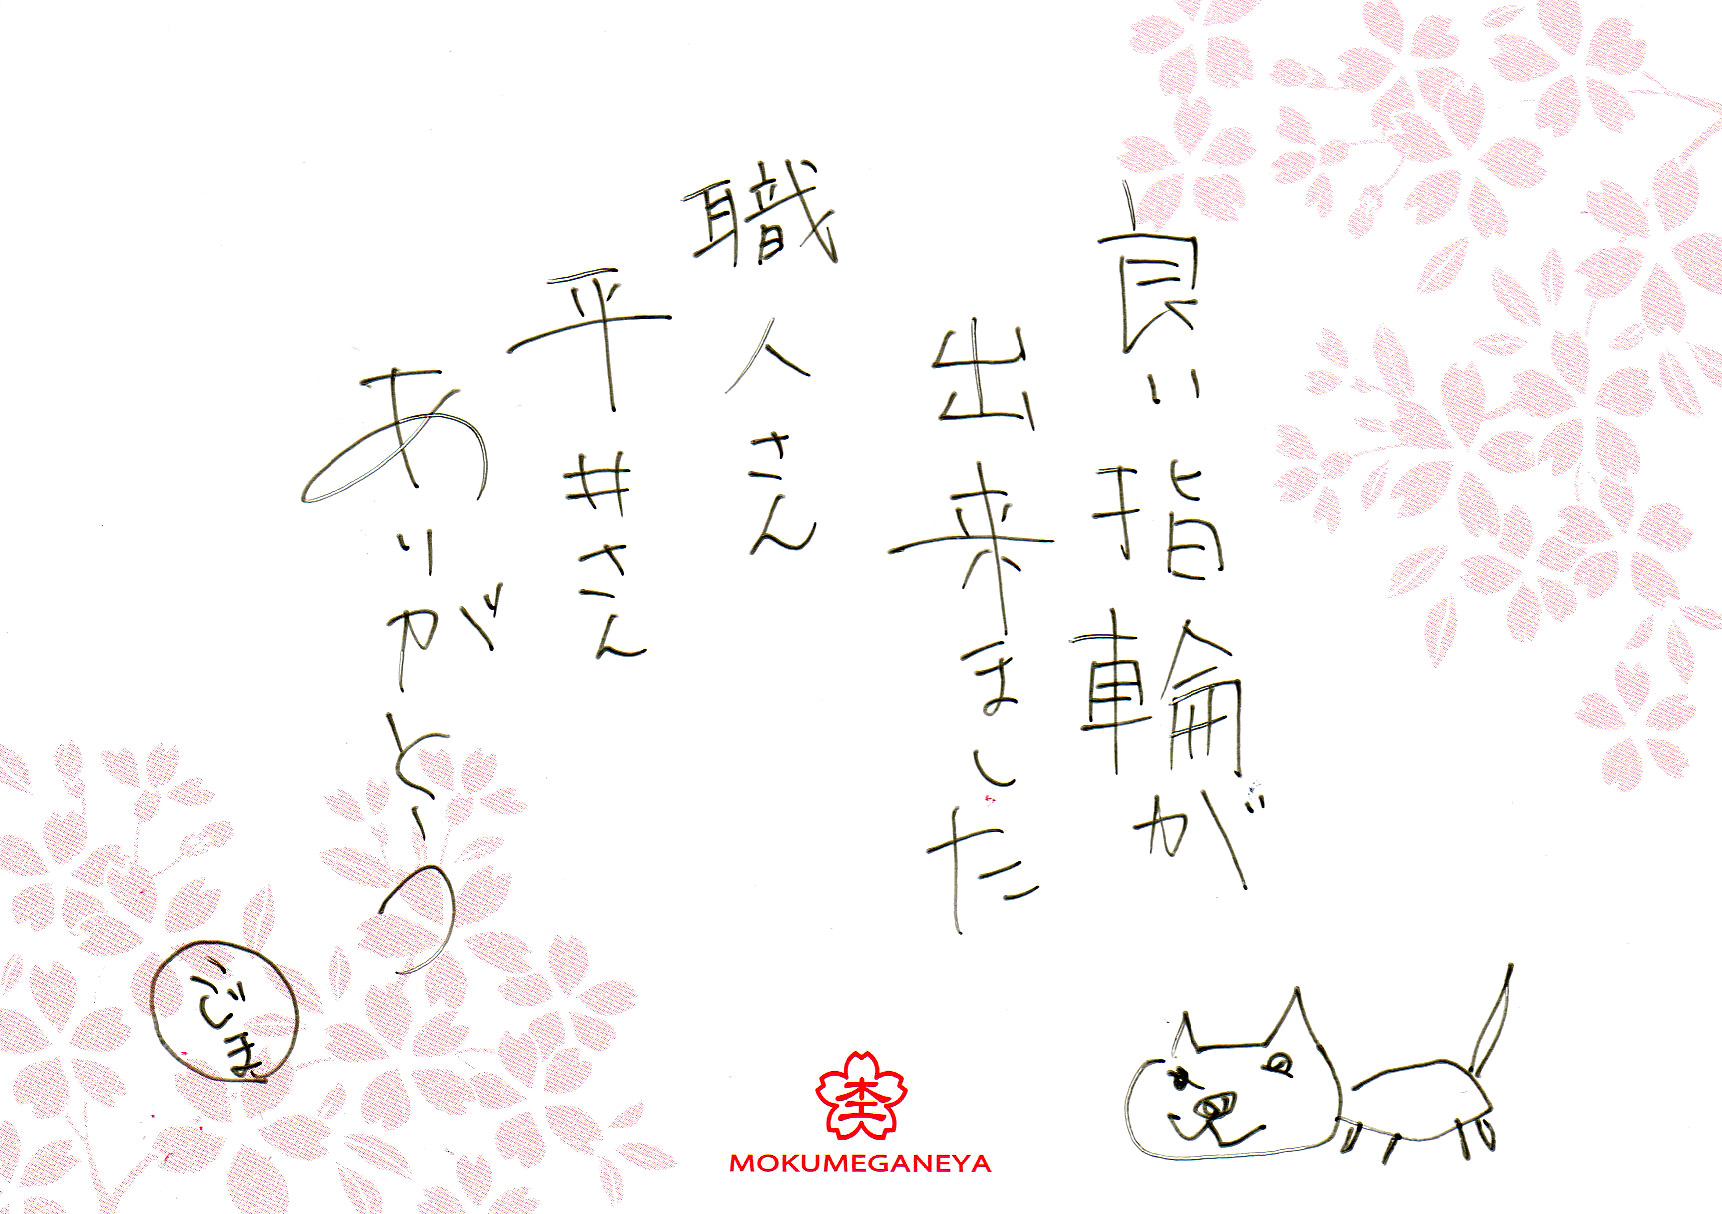 良い指輪が
出来ました
職人さん
平井さん
ありがとう
杢
MOKUMEGANEYA